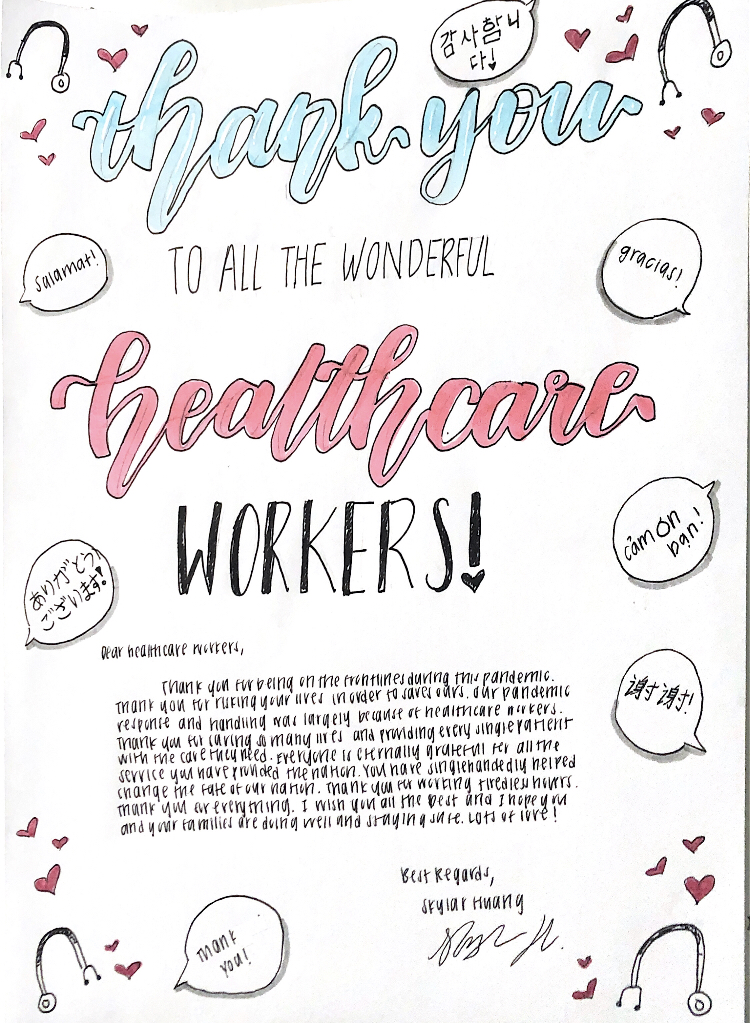 감사합니
다!
thank you
salamat!
TO ALL THE WONDERFUL
gracias!
healthcare
WORKERS!
cảm ơn
bạn!
ありがとう
ございます!
Dear healthcare workers,
Thank you for being on the frontlines during this pandemic.
Thank you for risking your lives in order to saves ours. Our pandemic
response and handling was largely because of healthcare workers.
Thank you for saving so many lives and providing every single patient
with the care they need. Everyone is eternally grateful for all the
service you have provided the nation. You have singlehandedly helped
change the fate of our nation. Thank you for working tireless hours.
Thank you for everything. I wish you all the best and I hope you
and your families are doing well and staying safe. Lots of love!
谢谢!
Best Regards,
Skylar Huang
Thank
you!